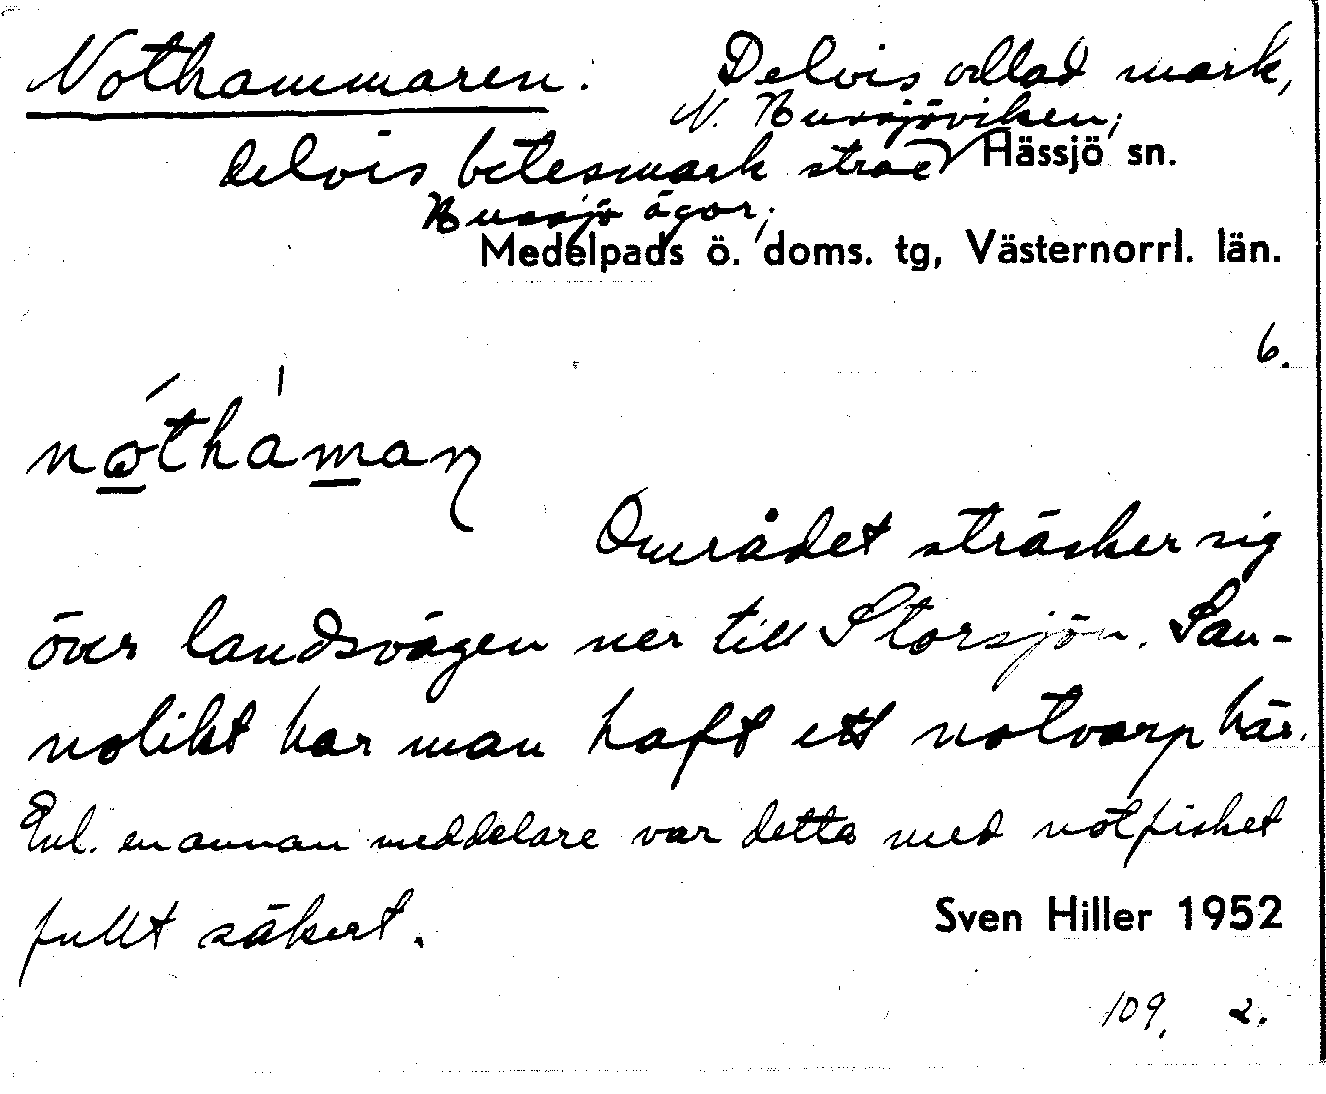 Nothammaren. Delvis odlad mark,
N. Hussjöviken;
delvis betesmark strax Hässjö sn.
Hussjö ägor;
Medelpads ö. doms. tg, Västernorrl. län.
6.
Området sträcker sig
över landsvägen ner till Storsjön. San-
nolikt har man haft ett notvarp här.
Enl. en annan meddelare var detta med notfisket
fullt säkert.
Sven Hiller 1952
109, 2.